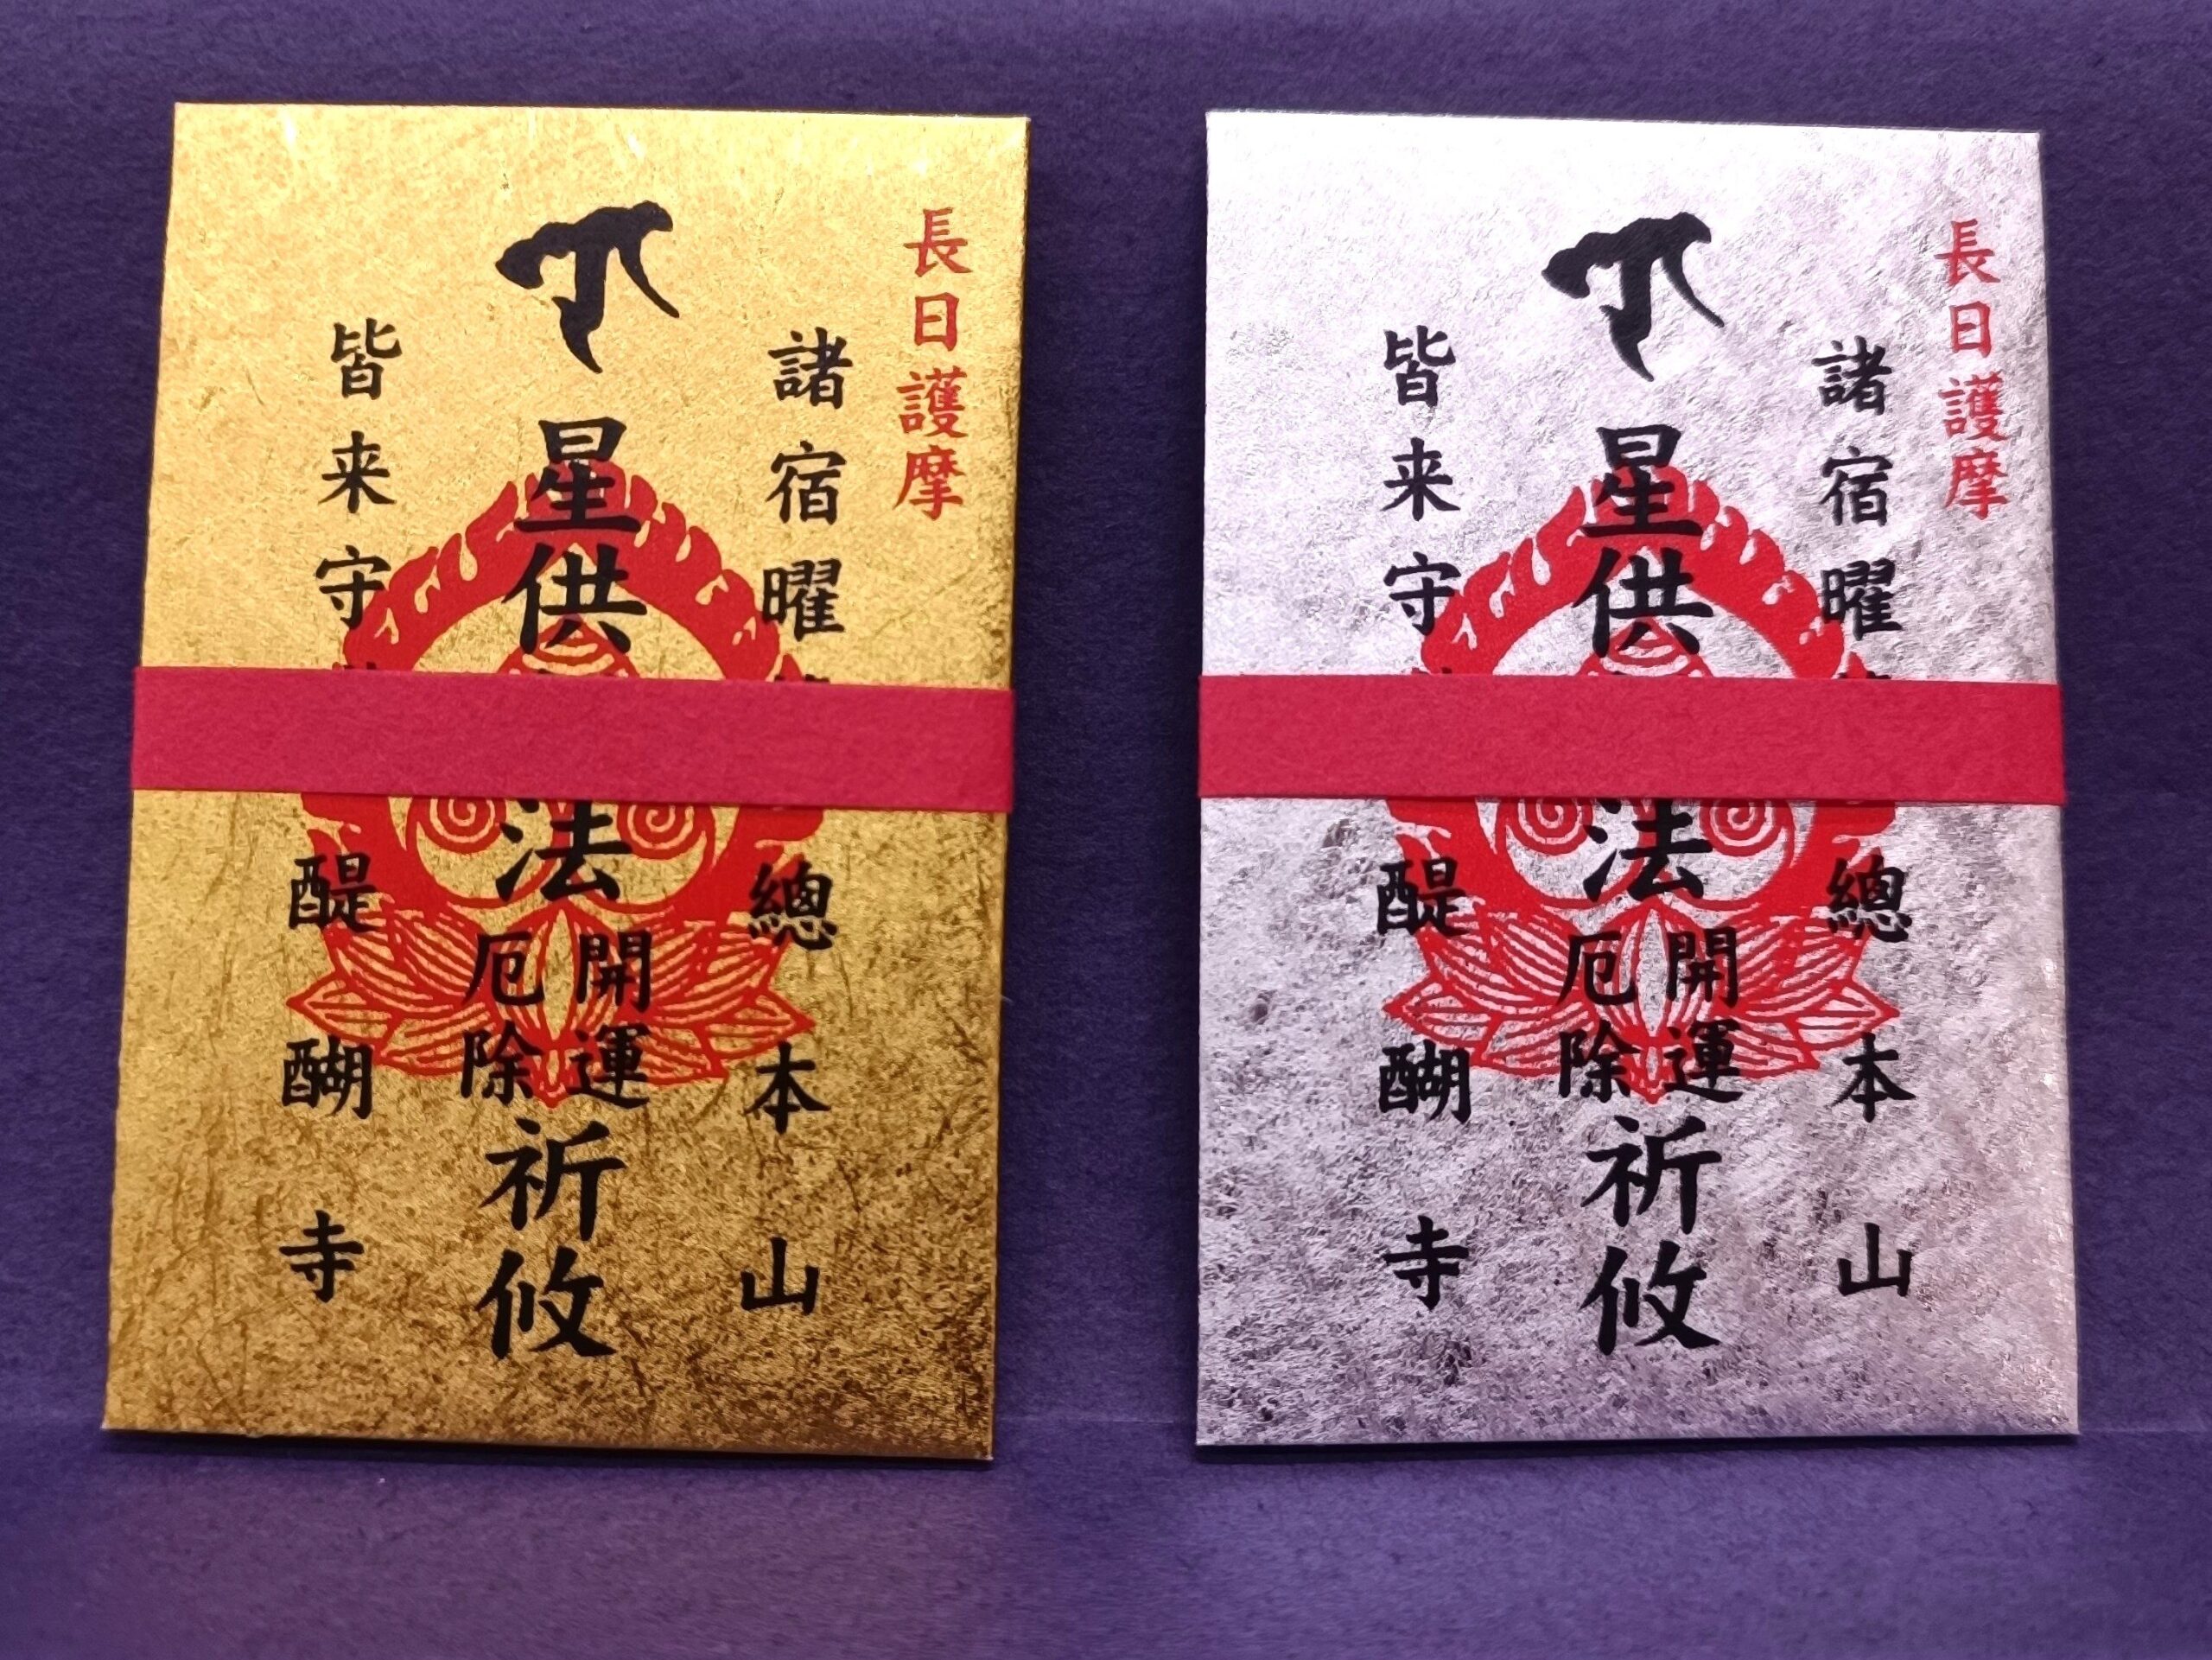 長日護摩
諸宿曜
總本山
星供
法
開運
厄除
祈攸
皆来守
醍醐寺
長日護摩
諸宿曜
總本山
星供
法
開運
厄除
祈攸
皆来守
醍醐寺